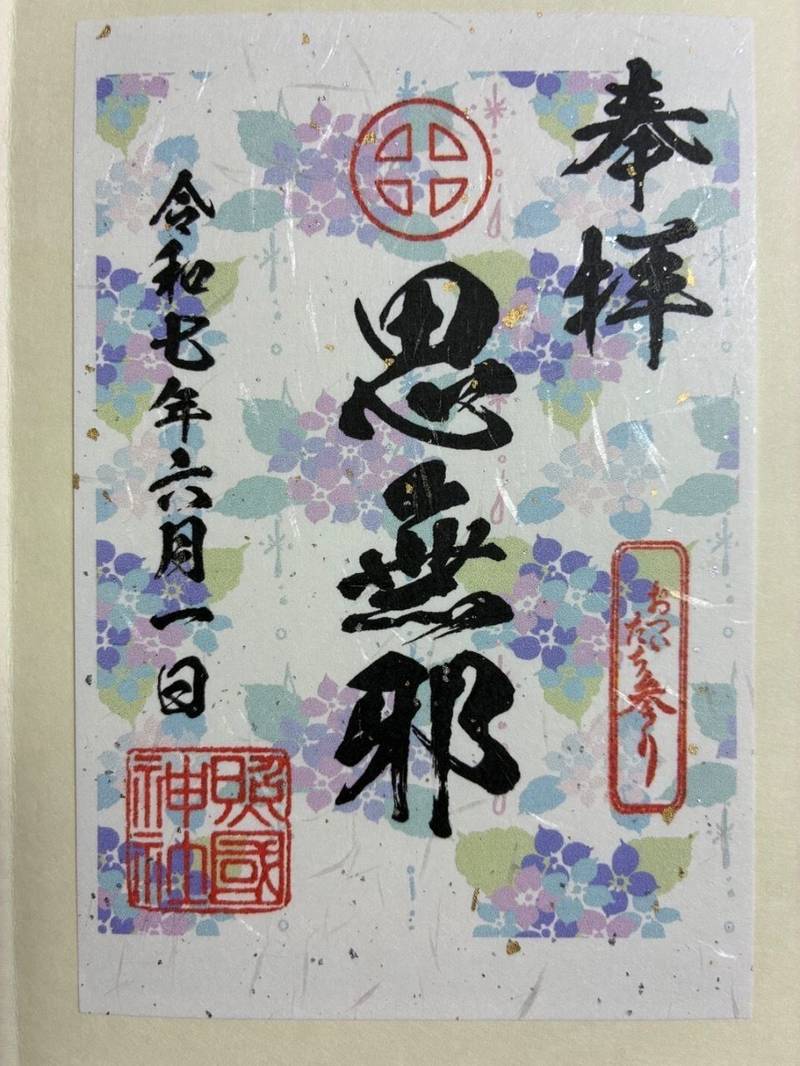 奉拝
おついたち参り
思無邪
令和七年六月一日
照國神社